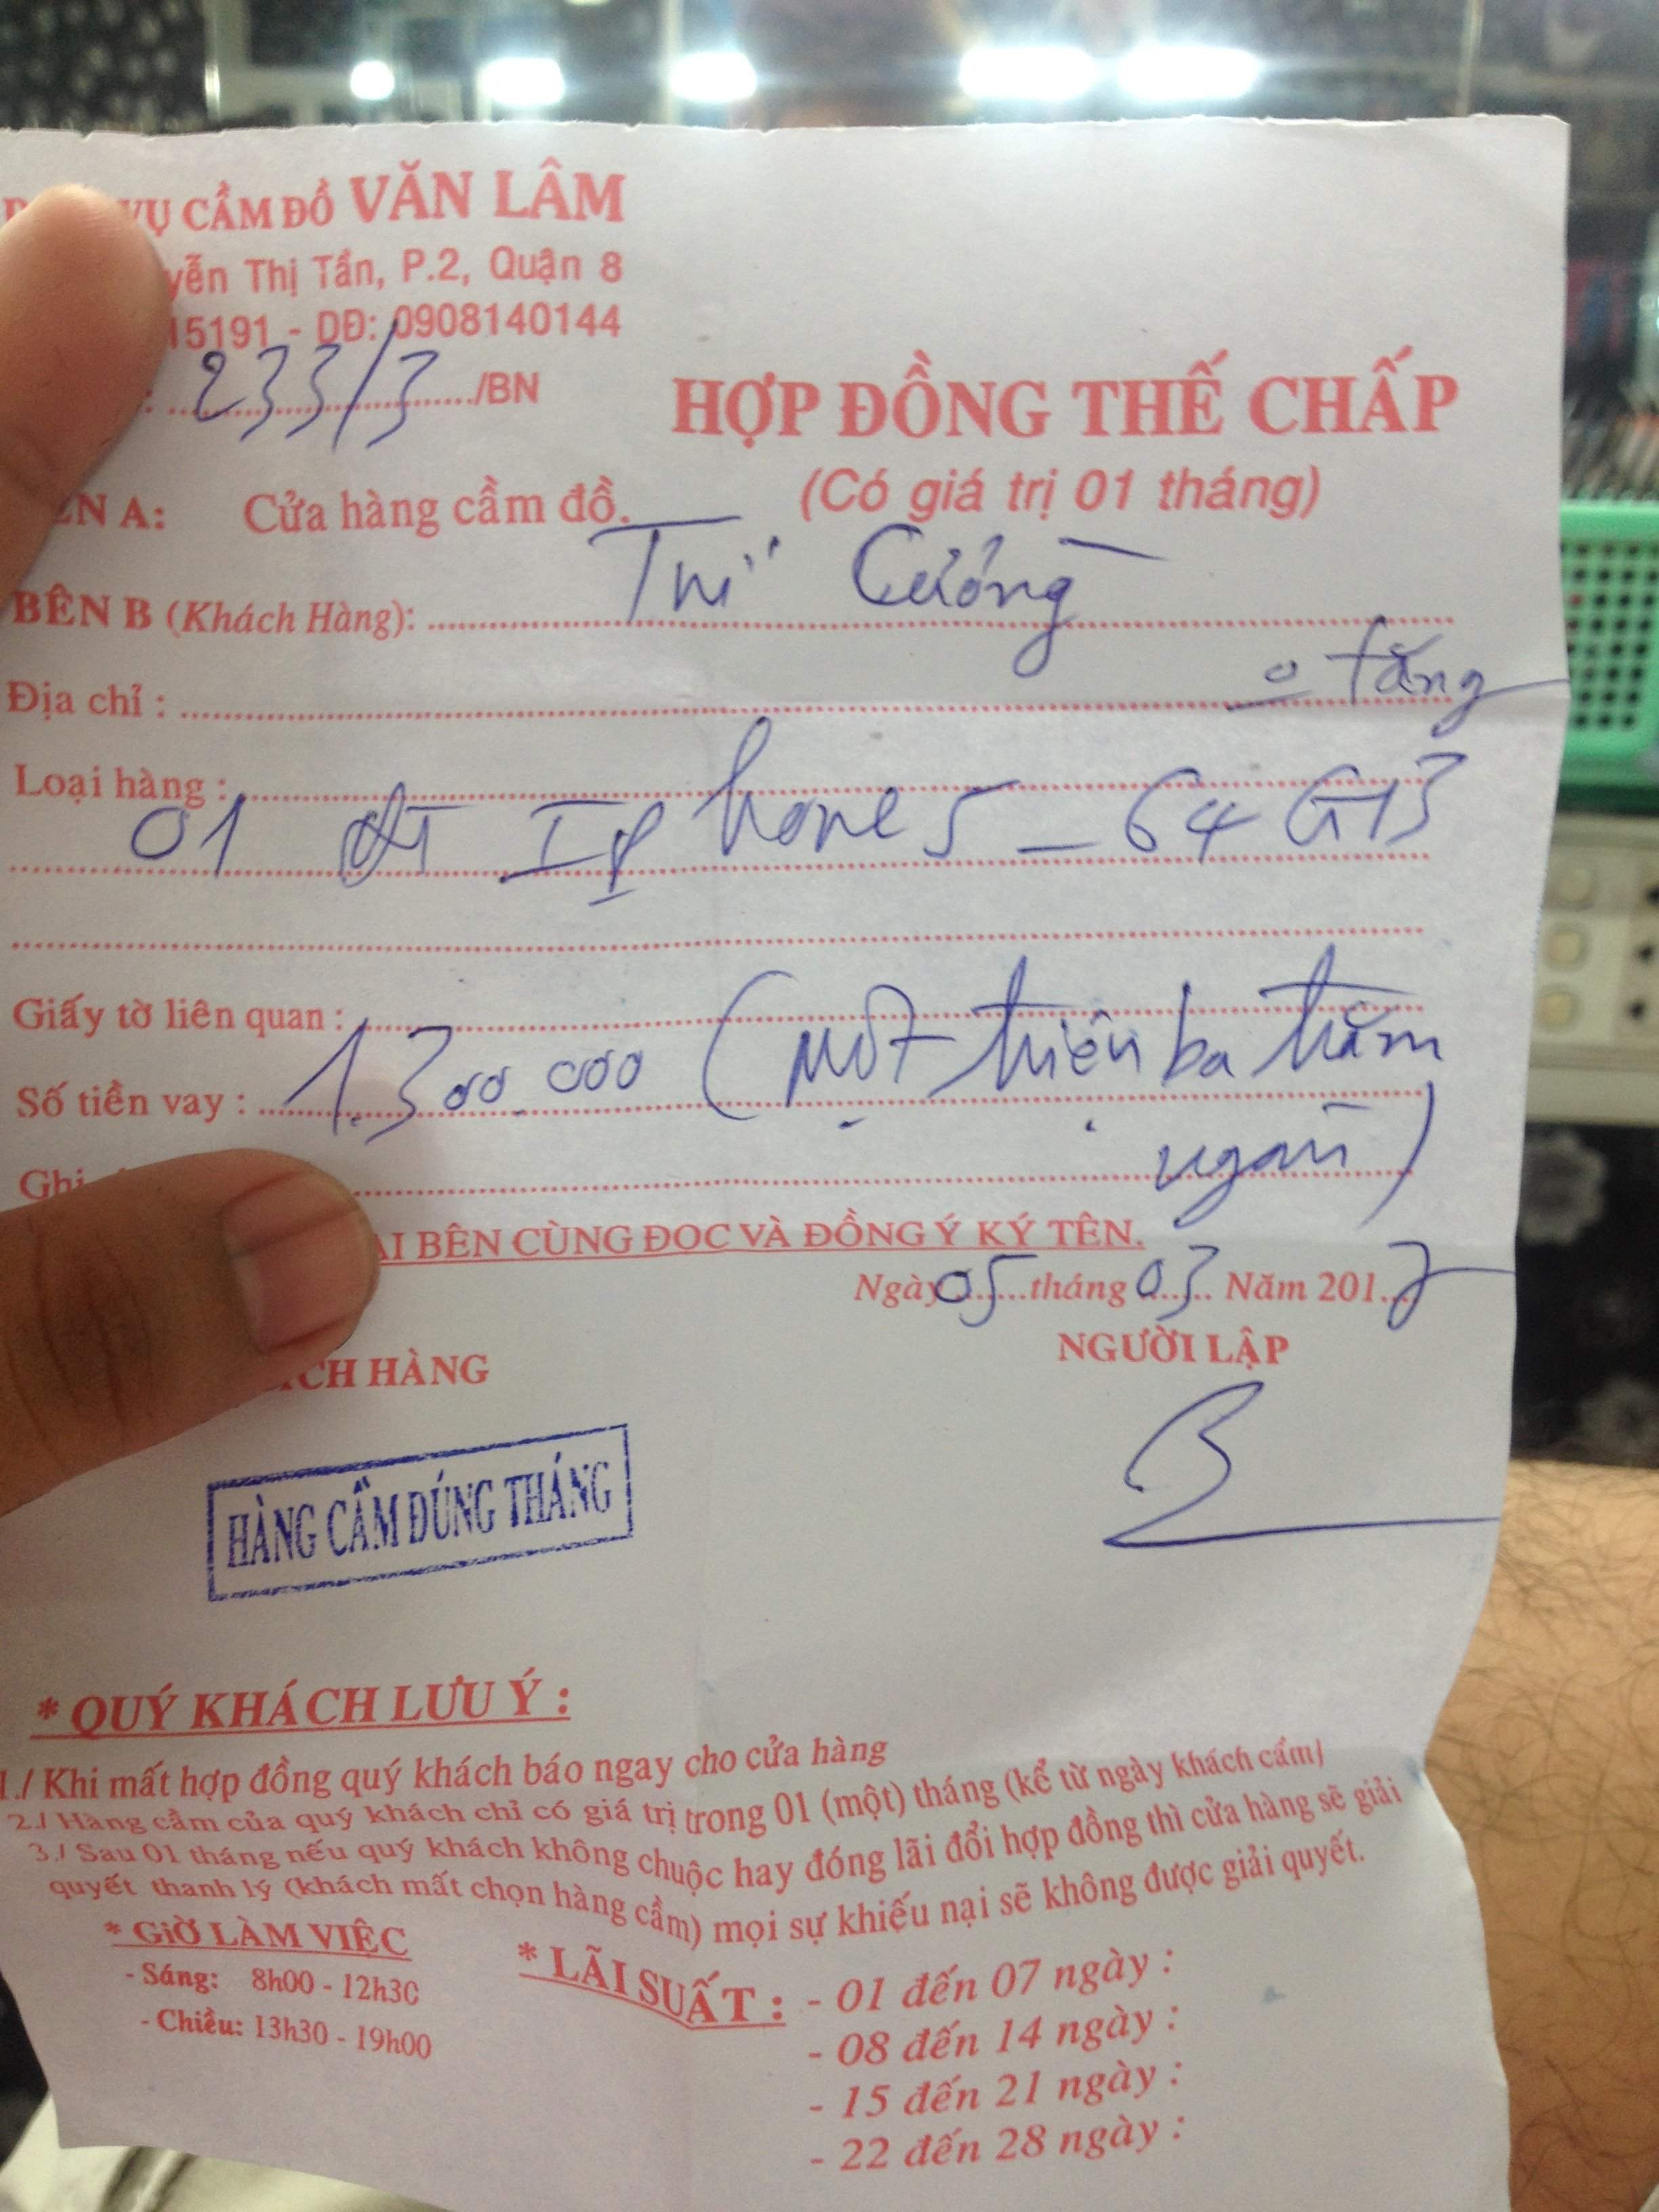 VỤ CẦM ĐỒ VĂN LÂM
Thị Tần, P.2, Quận 8
15191 - DĐ: 0908140144
: 233/3 /BN
HỢP ĐỒNG THẾ CHẤP
(Có giá trị 01 tháng)
A: Cửa hàng cầm đồ.
BÊN B (Khách Hàng): Cường
Địa chỉ :
Loại hàng :
01 ĐT IPhone 5 - 64 GB
Giấy tờ liên quan :
Số tiền vay : 1.300.000 (Một triệu ba trăm
ngàn)
BÊN CÙNG ĐỌC VÀ ĐỒNG Ý KÝ TÊN.
Ngày 05 tháng 03 Năm 2017
HÀNG
NGƯỜI LẬP
HÀNG CẦM ĐÚNG THÁNG
* QUÝ KHÁCH LƯU Ý :
1./ Khi mất hợp đồng quý khách báo ngay cho cửa hàng
2./ Hàng cầm của quý khách chỉ có giá trị trong 01 (một) tháng (kể từ ngày khách cầm)
3./ Sau 01 tháng nếu quý khách không chuộc hay đóng lãi đổi hợp đồng thì cửa hàng sẽ giải
quyết thanh lý (khách mất chọn hàng cầm) mọi sự khiếu nại sẽ không được giải quyết.
* GIỜ LÀM VIỆC
- Sáng: 8h00 - 12h30
- Chiều: 13h30 - 19h00
* LÃI SUẤT : - 01 đến 07 ngày :
- 08 đến 14 ngày :
- 15 đến 21 ngày :
- 22 đến 28 ngày :